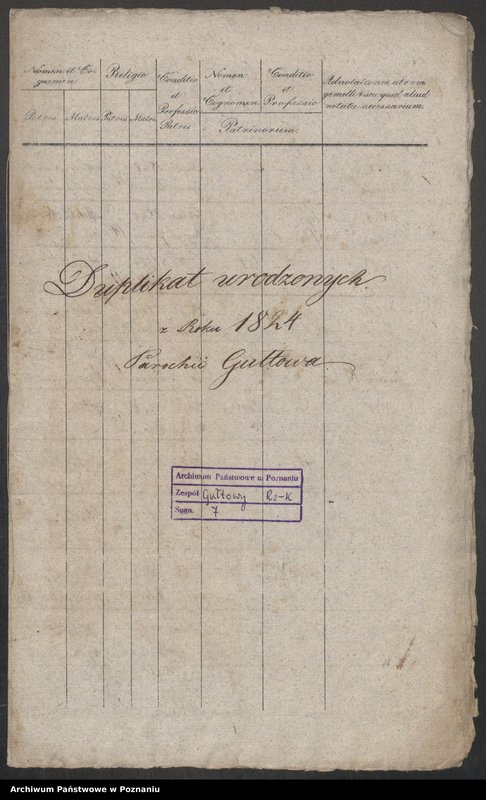 Nomen et Co-
gnomen.
Religio
Conditio
et
Professio
Patris
Nomen
et
Cognomen.
Conditio
et
Professio
Adnotationes utrum
gemelli et seu quid aliud
notatu necessarium.
Patris
Matris
Patris
Matris
Patrinorum.
Duplikat urodzonych
z Roku 1824
Parochii Gułtowa
Archiwum Państwowe w Poznaniu
Zespół Gułtowy Rz-K
Sygn. 7
Archiwum Państwowe w Poznaniu